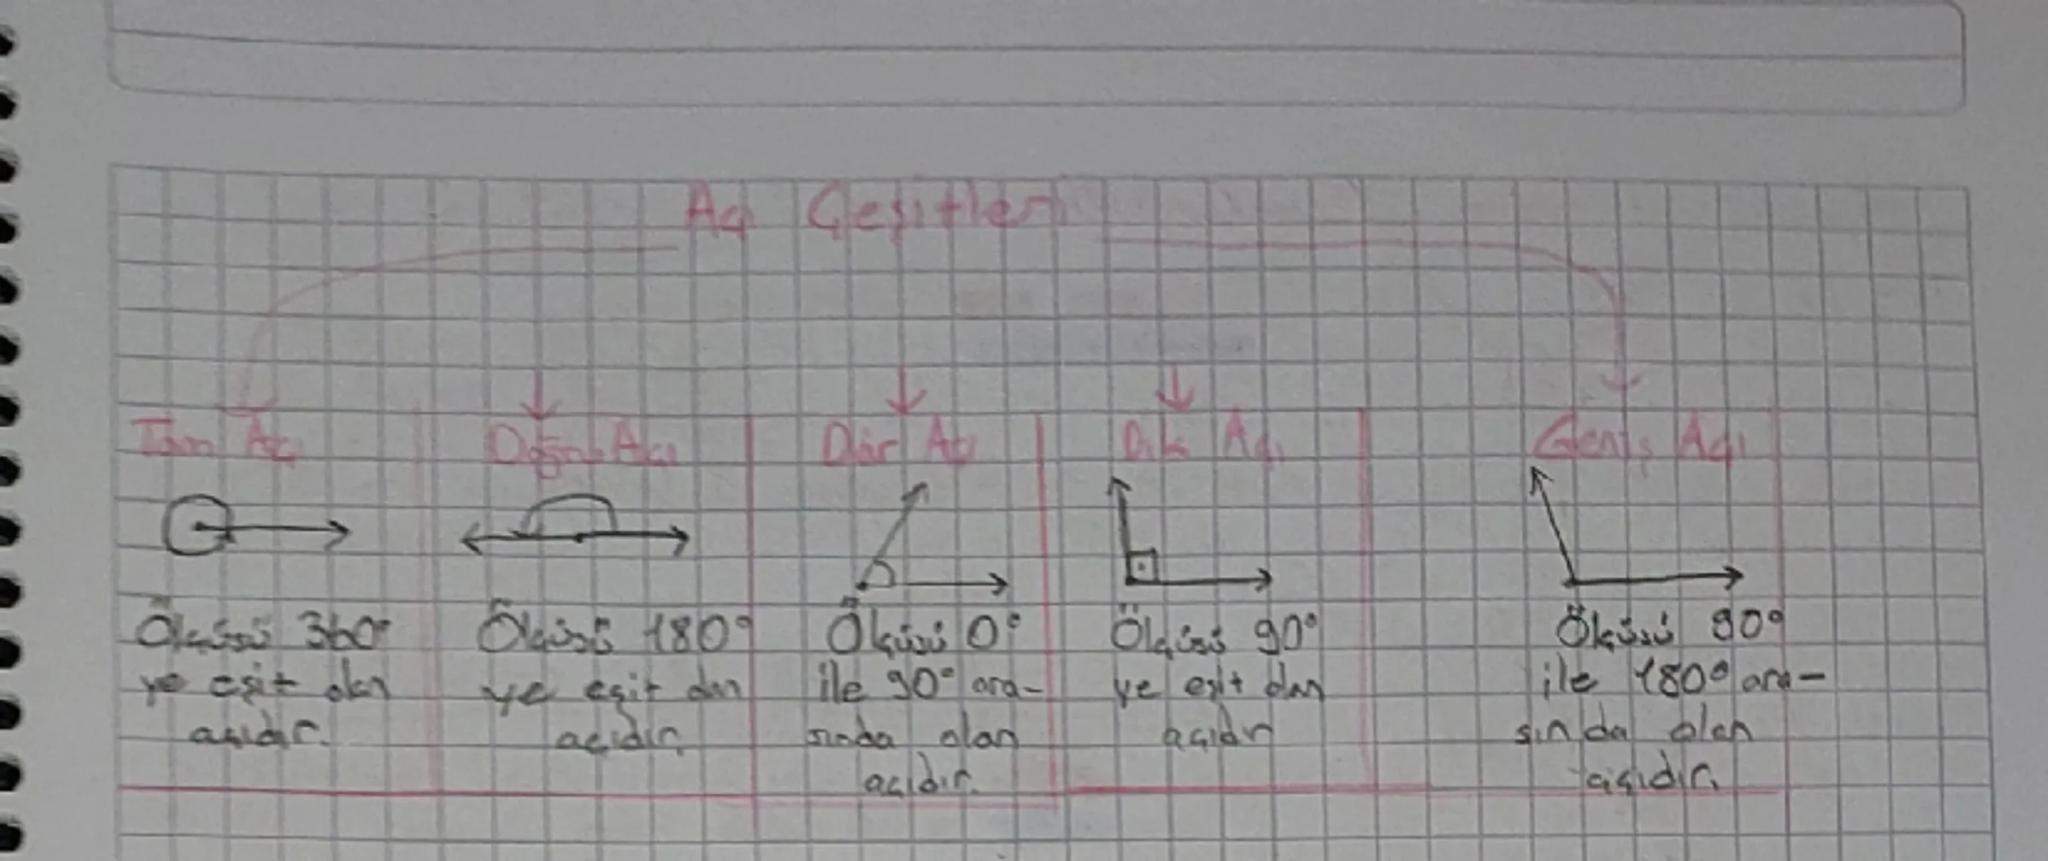 Açı Çeşitleri
Tam Açı
Ölçüsü 360°
ye eşit olan
açıdır.
Doğru Açı
Ölçüsü 180°
ye eşit olan
açıdır.
Dar Açı
Ölçüsü 0°
ile 90° ara-
sında olan
açıdır.
Dik Açı
Ölçüsü 90°
ye eşit olan
açıdır
Geniş Açı
Ölçüsü 90°
ile 180° ara-
sında olan
açıdır.